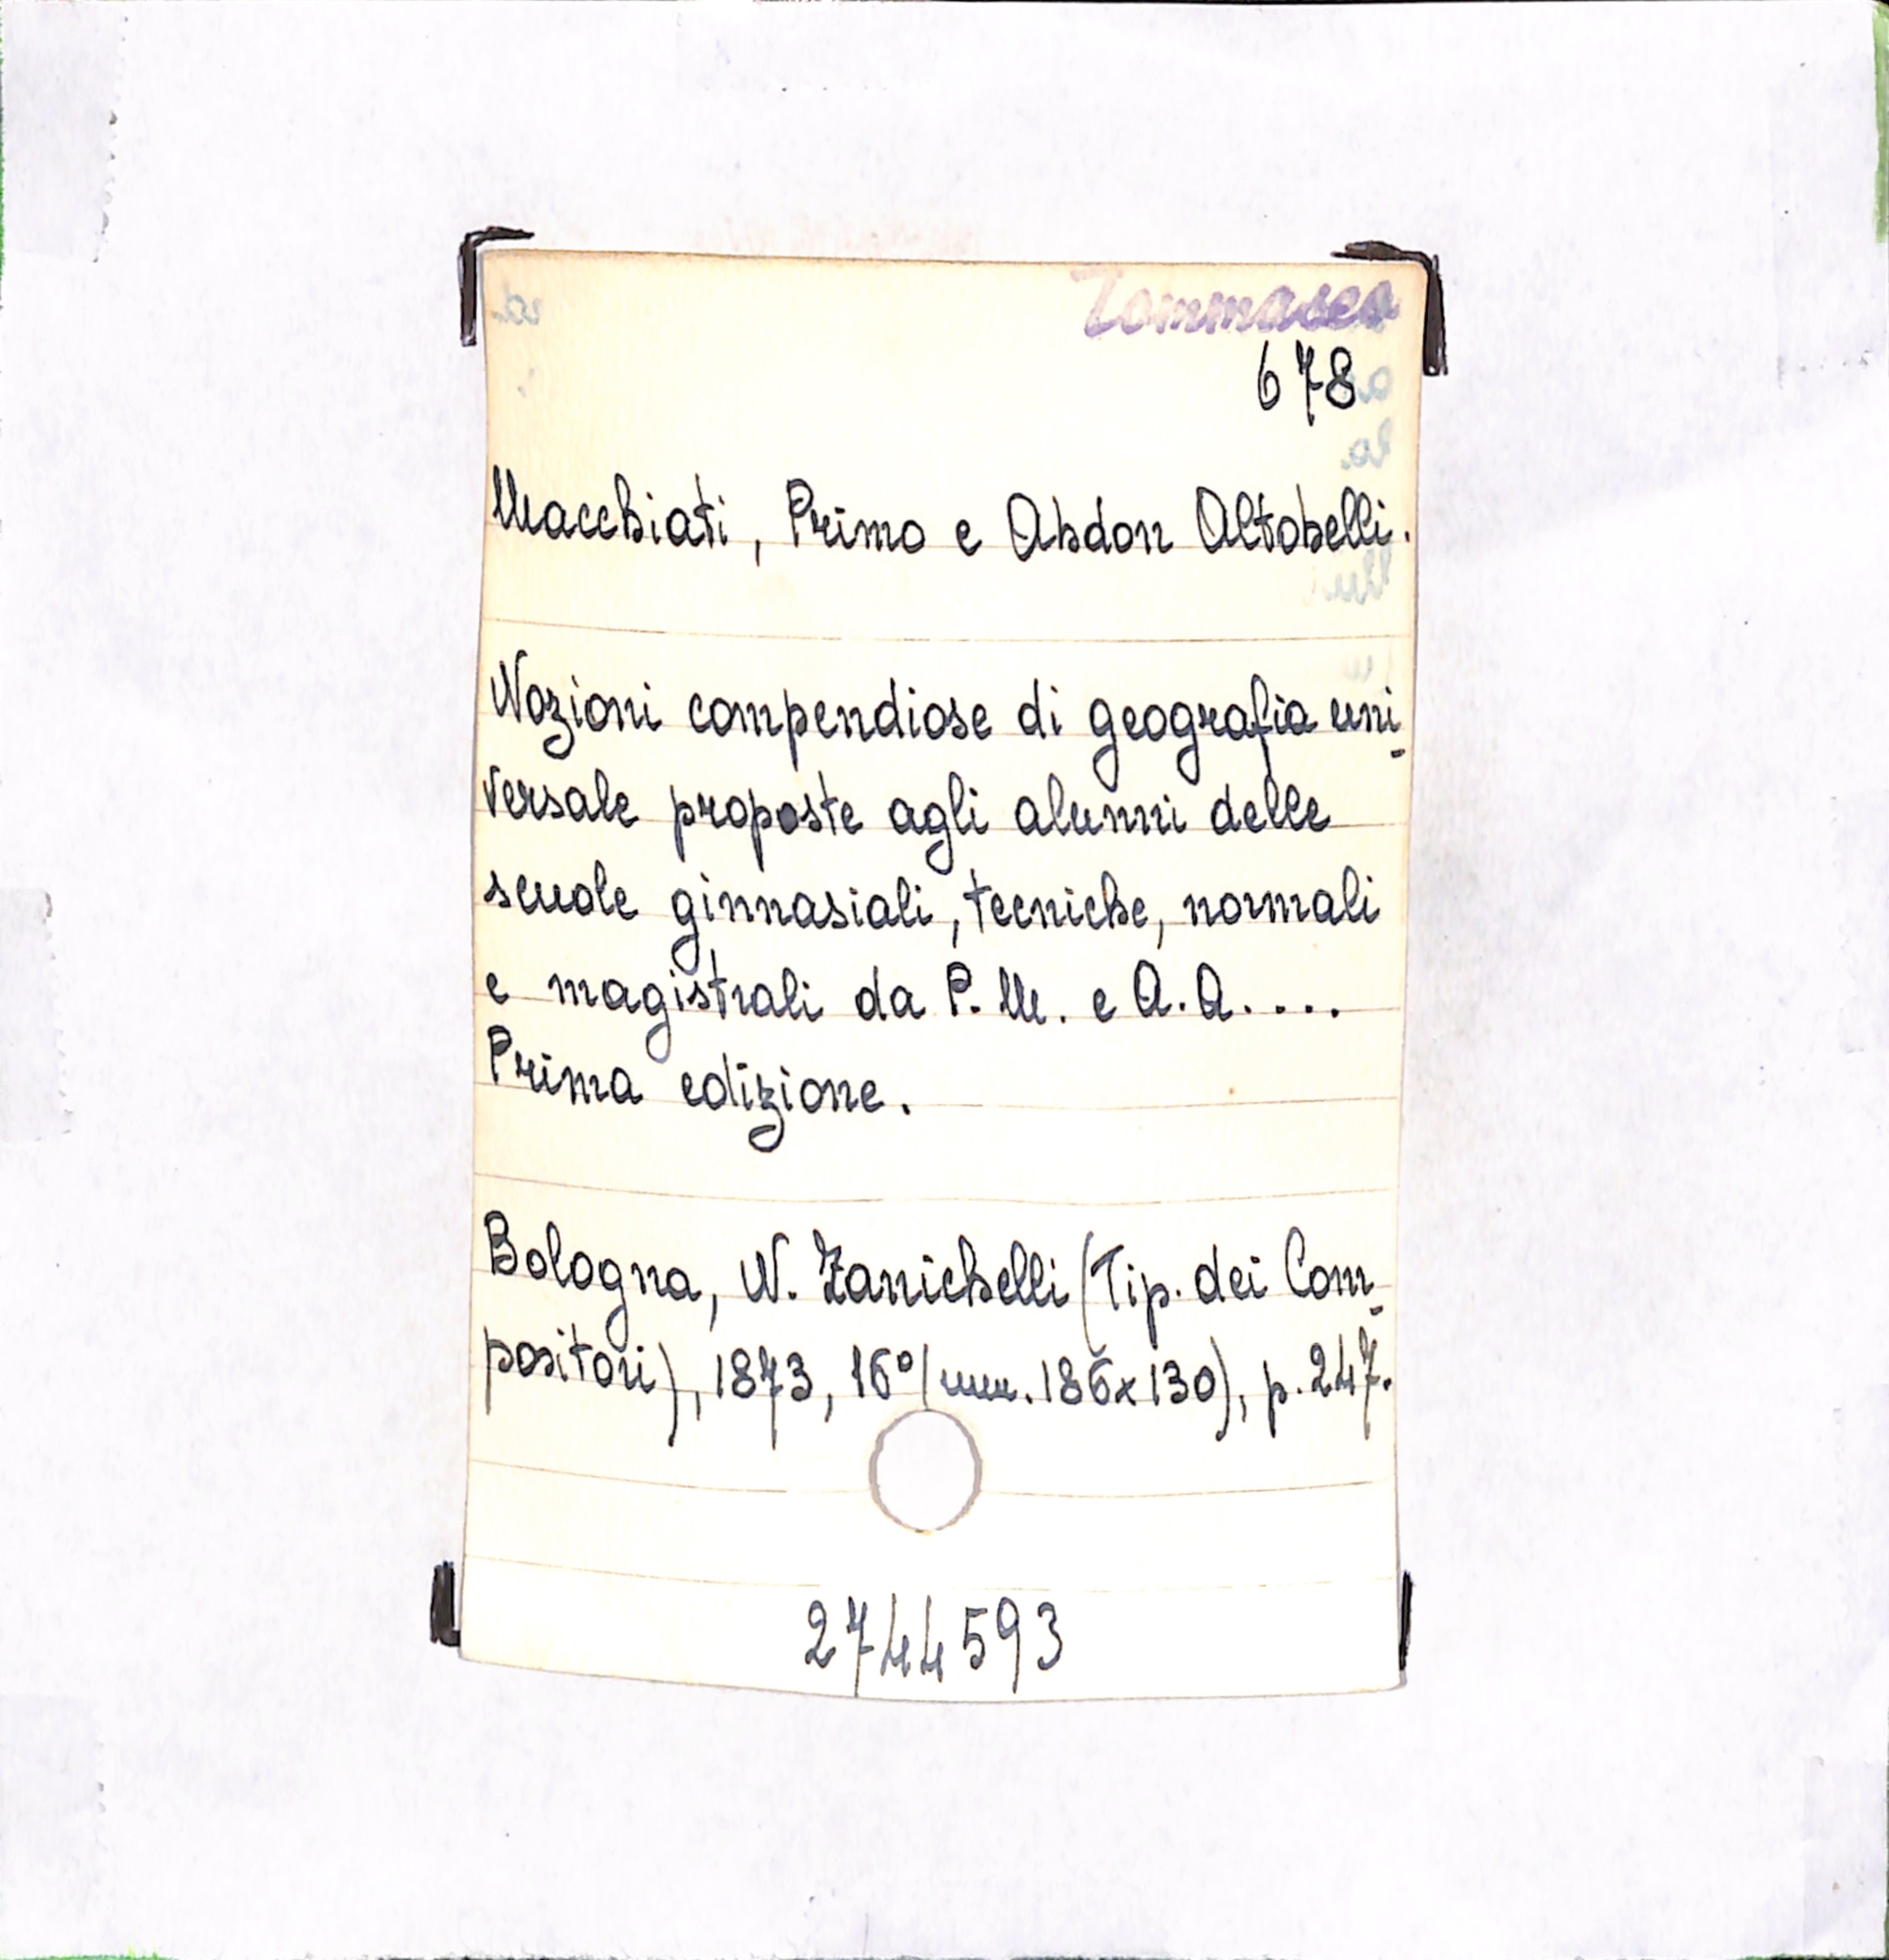 Tommaseo
678
Macchiati, Primo e Abdon Altobelli.
Nozioni compendiose di geografia uni-
versale proposte agli alunni delle
scuole ginnasiali, tecniche, normali
e magistrali da P. M. e A. A. ....
Prima edizione.
Bologna, N. Zanichelli (Tip. dei Com-
positori), 1873, 16° (mm. 186x130), p. 247.
2744593